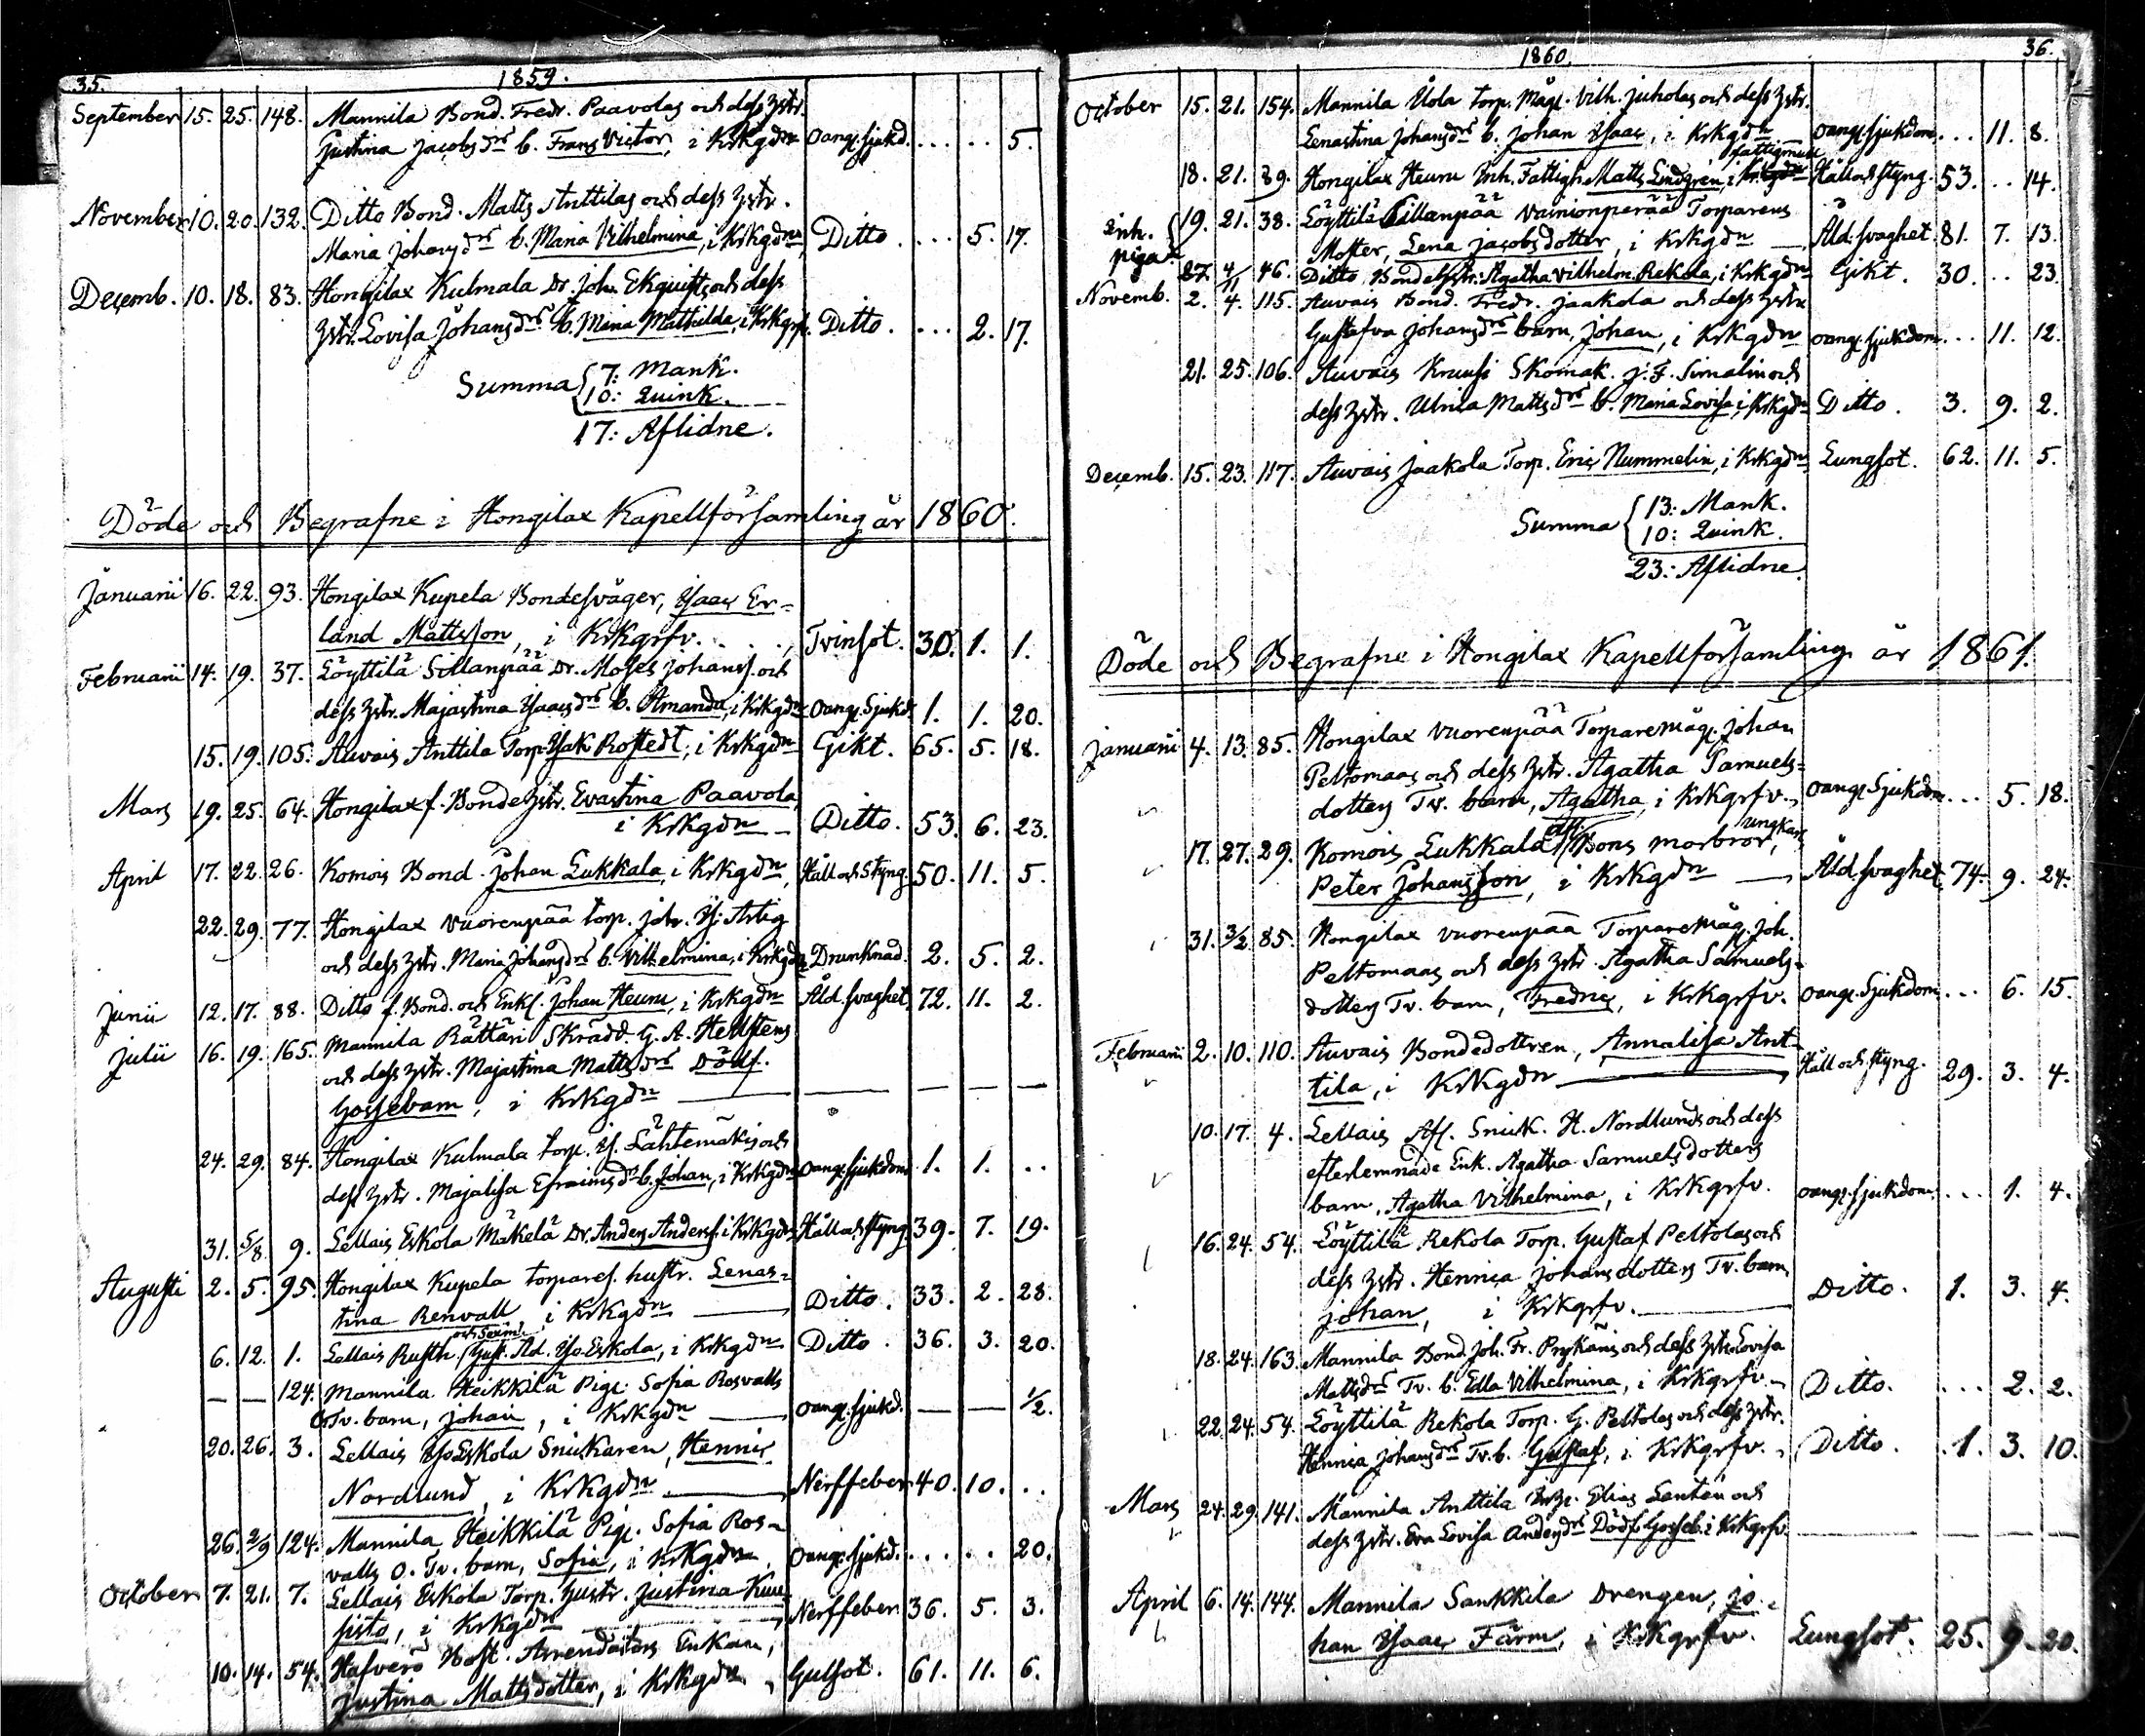 35.
1859.
September 15. 25. 148. Mannila Bond. Fredr. Paavolas och dess hstr.
Justina Jacobsdrs b. Frans Victor, i Krkgdn Oang. sjukd. . . . . . 5.
November 10. 20. 132. Ditto Bond. Matts Anttilas och dess hstr.
Maria Johansdrs b. Maria Vilhelmina, i Krkgdn, Ditto . . . . 5. 17.
Decemb. 10. 18. 83. Hongilax Kulmala Dr. Joh. Ekquists och dess
hstr. Lovisa Johansdrs b. Maria Mathilda, i Krkgrfv. Ditto. . . . 2. 17.
Summa 7: Mank.
10: Quink.
17: Aflidne.
Döde och Begrafne i Hongilax Kapellförsamling år 1860.
Januarii 16. 22. 93. Hongilax Kupela Bondesvåger, Isaac Er=
land Mattsson, i Krkgrfv. . . , Tvinsot. 30. 1. 1.
Februarii 14. 19. 37. Löyttilä Sillanpää Dr. Moses Johanss. och
dess hstr. Majastina Isaacsdrs b. Amanda, i Krkgdn Oang. Sjukd. 1. 1. 20.
15. 19. 105. Auvais Anttila Torp. Isak Rostedt, i Krkgdn Gikt. 65. 5. 18.
Mars 19. 25. 64. Hongilax f. Bondehstr. Evastina Paavola,
i Krkgdn – Ditto. 53. 6. 23.
April 17. 22. 26. Komois Bond. Johan Lukkala, i Krkgdn, Håll och Styng. 50. 11. 5.
22. 29. 77. Hongilax Vuorenpää torp. Joh. Is. Artig
och dess hstr. Maria Johansdrs b. Vilhelmina, i Krkgdn Drunknad. 2. 5. 2.
Junii 12. 17. 88. Ditto f. Bond. och Enkl. Johan Heuru, i Krkgdn Åld. svaghet. 72. 11. 2.
Julii 16. 19. 165. Mannila Rättäri Skrädd. G. A. Hellstens
och dess hstr. Majastina Mattsdrs Dödf.
Gossebarn, i Krkgdn — — — — —
24. 29. 84. Hongilax Kulmala torp. Is. Lähtemäkis och
dess hstr. Majalisa Efraimsdrs b. Johan, i Krkgdn Oang. sjukdom. 1. 1. . .
31. 5/8 9. Lellais Eskola Mäkelä Dr. Anders Anderss. i Krkgdn Håll och styng. 39. 7. 19.
Augusti 2. 5. 95. Hongilax Kupela torpares hustr. Lenas=
tina Renvall, i Krkgdn — Ditto. 33. 2. 28.
6. 12. 1. Lellais Rusth. Gust. Ad. Iso Eskola, i Krkgdn Ditto. 36. 3. 20.
— — 124. Mannila Heikkilä Pig. Sofia Rosvalls
O. Tv. barn, Johan, i Krkgdn — Oang. sjukd. — — 1/2.
20. 26. 3. Lellais Iso Eskola Snickaren, Henric
Nordlund, i Krkgdn — Nerffeber 40. 10. . .
26. 2/9 124. Mannila Heikkilä Pig. Sofia Ros=
valls O. Tv. barn, Sofia, i Krkgdn, Oang. sjukd. . . . . . 20.
October 7. 21. 7. Lellais Eskola Torp. hustr. Justina Kuu=
sisto, i Krkgdn — Nerffeber 36. 5. 3.
10. 14. 54. Hafverö Bost. Arrendators Enkan,
Justina Mattsdotter, i Krkgdn, Gulsot. 61. 11. 6.
1860.
36.
October 15. 21. 154. Mannila Uola torp. Måg. Vilh. Juholas och dess hstr.
Lenastina Johansdrs b. Johan Isaac, i Krkgdn Oang. sjukdom. . . . 11. 8.
fattigmull
18. 21. 89. Hongilax Heuru Inh. Fattigh. Matts Lindgren, i Krkgdn Håll och styng. 53. . . 14.
Inh. piga 19. 21. 38. Löyttilä Sillanpää Vainionperää Torparens
Moster, Lena Jacobsdotter, i Krkgdn — Åld. svaghet. 81. 7. 13.
27. 4/11 46. Ditto, Bondehstr. Agatha Vilhelm. Rekola, i Krkgdn Gikt. 30. . . 23.
Novemb. 2. 4. 115. Auvais Bond. Fredr. Jaakola och dess hstr.
Gustafva Johansdrs barn, Johan, i Krkgdn Oang. sjukdom. . . . 11. 12.
21. 25. 106. Auvais Kruusi Skomak. J. F. Simalin och
dess hstr. Ulrica Mattsdrs b. Maria Lovisa, i Krkgdn Ditto. 3. 9. 2.
Decemb. 15. 23. 117. Auvais Jaakola Torp. Eric Nummelin, i Krkgdn Lungsot. 62. 11. 5.
Summa 13: Mank.
10: Quink.
23: Aflidne.
Döde och Begrafne i Hongilax Kapellförsamling år 1861.
Januarii 4. 13. 85. Hongilax Vuorenpää Torparemåg. Johan
Peltomaas och dess hstr. Agatha Samuels=
dotters Tv. barn, Agatha, i Krkgrfv., Oang. Sjukdom. . . . 5. 18.
ungkarl
17. 27. 29. Komois Lukkala afl. Bons morbror,
Peter Johansson, i Krkgdn — Åld. svaghet. 74. 9. 24.
31. 3/2 85. Hongilax Vuorenpää Torparemåg. Joh.
Peltomaas och dess hstr. Agatha Samuels=
dotters Tv. barn, Fredric, i Krkgrfv. Oang. Sjukdom. . . . 6. 15.
Februarii 2. 10. 110. Auvais Bondedottren, Annalisa Ant=
tila, i Krkgdn — Håll och styng. 29. 3. 4.
10. 17. 4. Lellais Afl. Snick. H. Nordlunds och dess
efterlemnade Enk. Agatha Samuelsdotters
barn, Agatha Vilhelmina, i Krkgrfv. Oang. sjukdom. . . . 1. 4.
16. 24. 54. Löyttilä Rekola Torp. Gustaf Peltolas och
dess hstr. Henrica Johansdotters Tv. barn,
Johan, i Krkgrfv. — Ditto. 1. 3. 4.
18. 24. 163. Mannila Bond. Joh. Fr. Prykäris och dess hstr. Lovisa
Mattsdrs Tv. b. Edla Vilhelmina, i Krkgrfv. – Ditto. . . . 2. 2.
22. 24. 54. Löyttilä Rekola Torp. G. Peltolas och dess hstr.
Henrica Johansdrs Tv. b. Gustaf, i Krkgrfv. , Ditto. 1. 3. 10.
Mars 24. 29. 141. Mannila Anttila Inh. Elias Lentén och
dess hstr. Eva Lovisa Andersdrs Dödf. Gosseb. i Krkgrfv. — — — —
April 6. 14. 144. Mannila Sankkila Drengen, Jo=
han Isaac Färm, i Krkgrfv. Lungsot. 25. 9. 20.